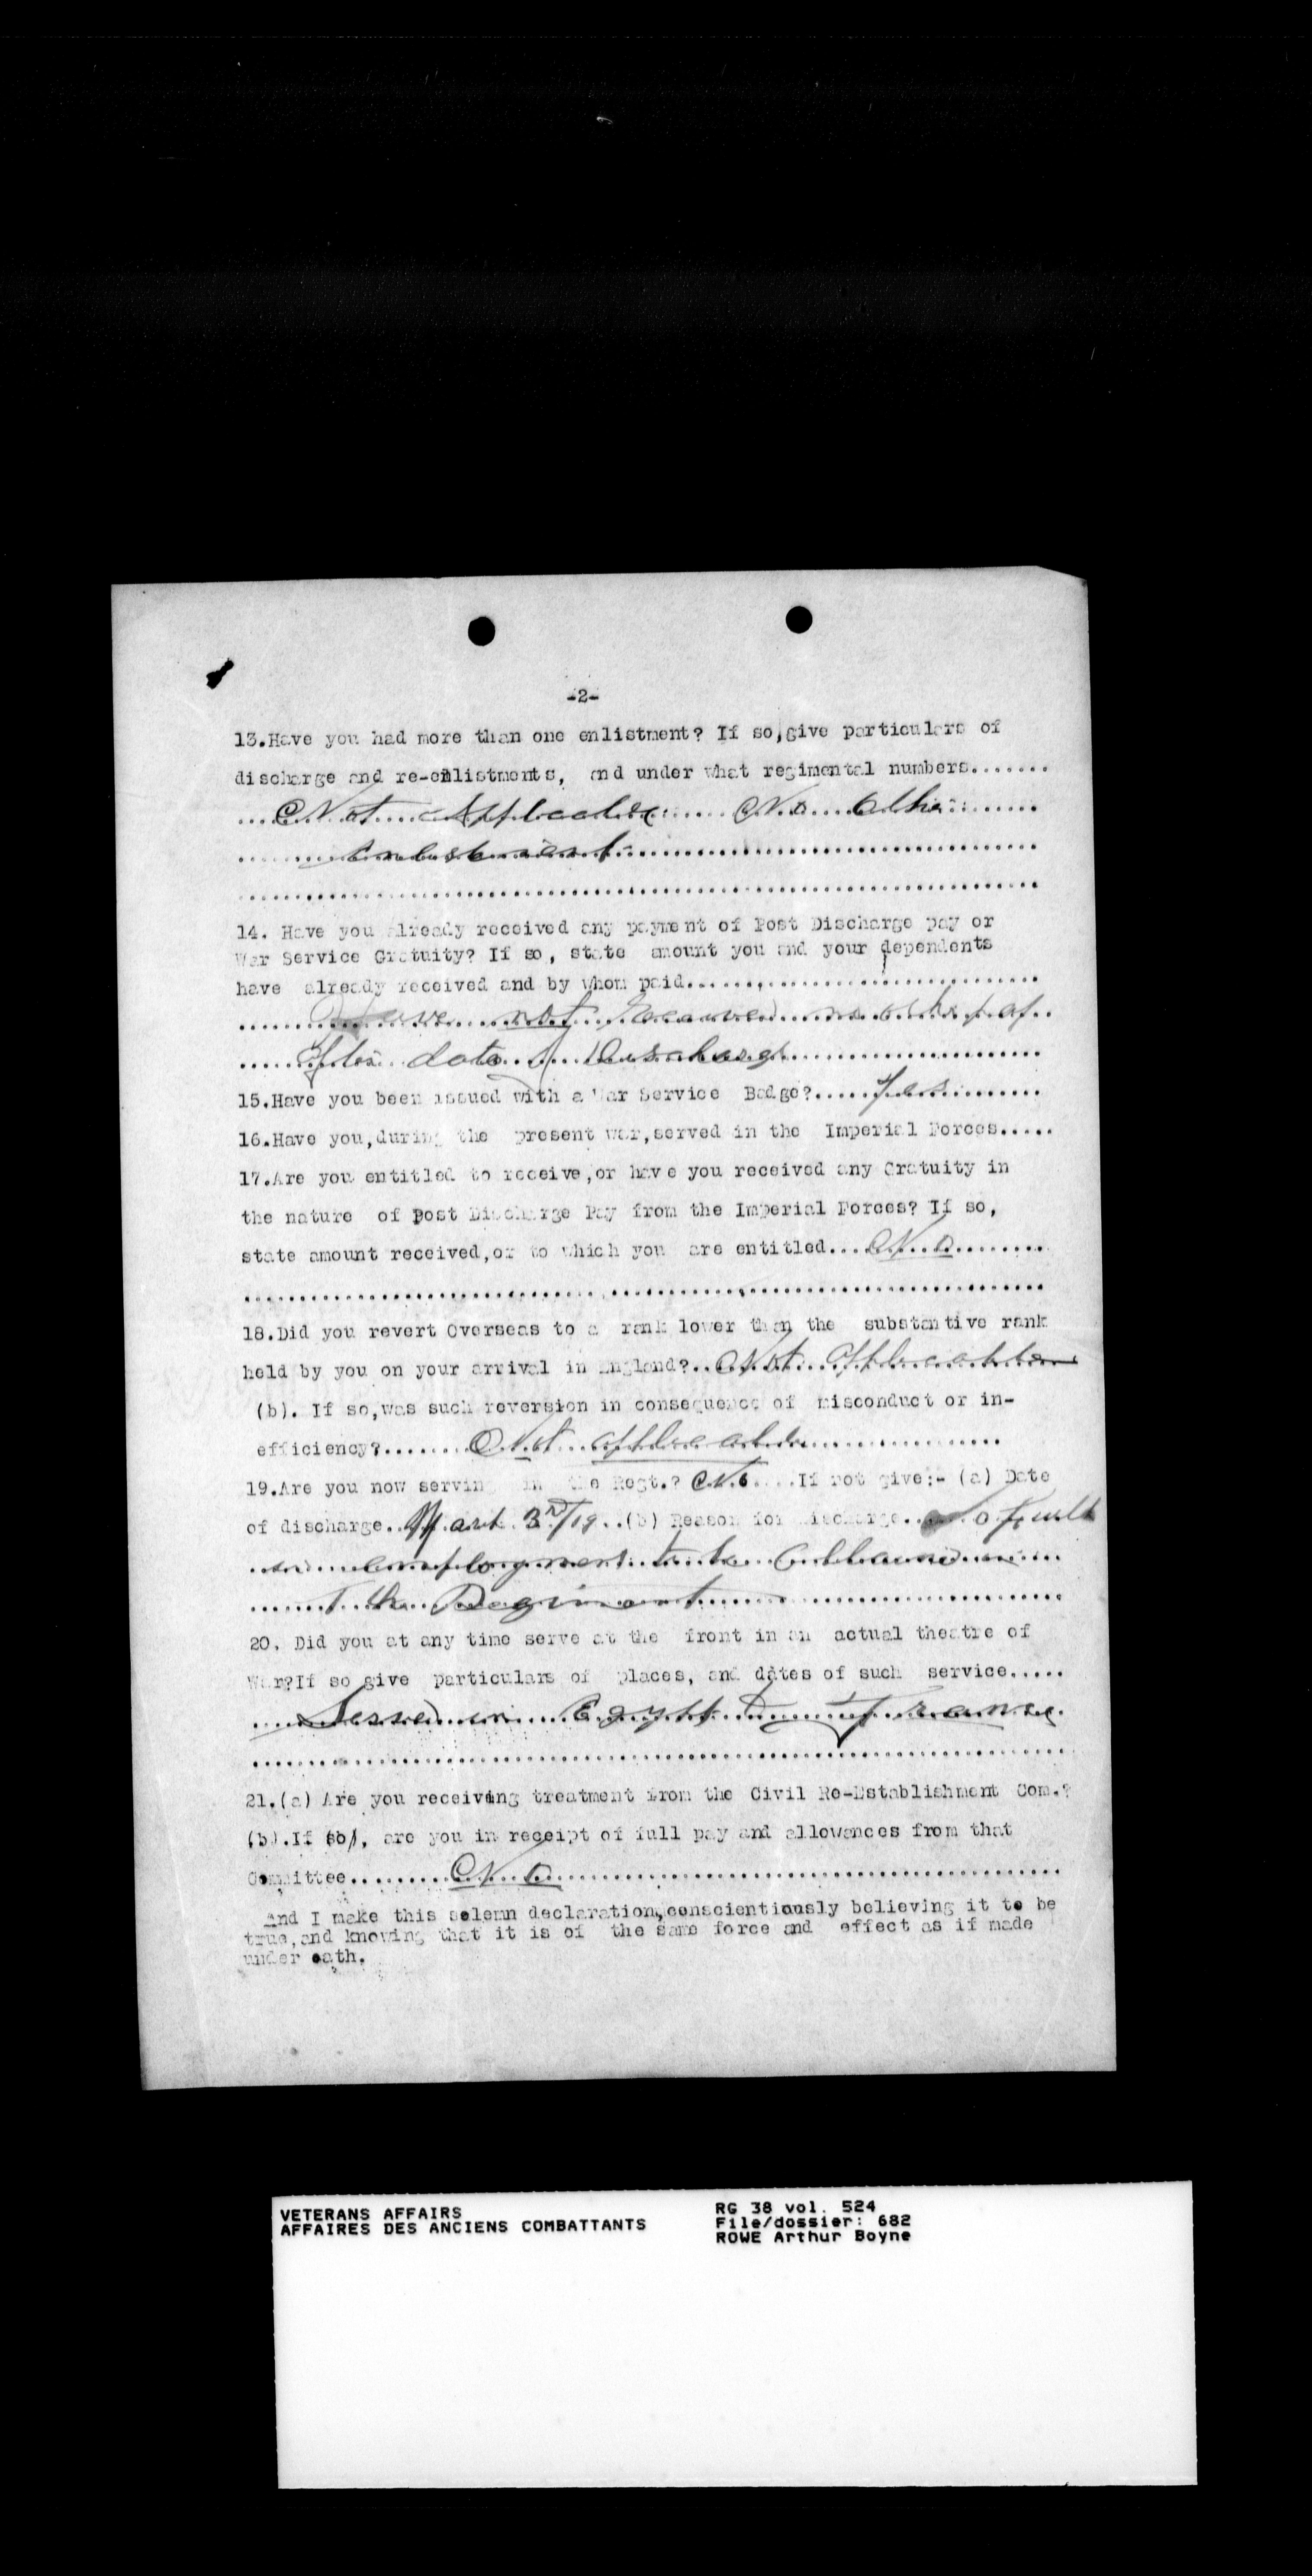 -2-
13.Have you had more than one enlistment? If so,give particulars of
discharge and re-enlistments, and under what regimental numbers.......
Not Applicable No Other
enlistment
14. Have you already received any payment of Post Discharge pay or
War Service Gratuity? If so, state amount you and your dependents
have already received and by whom paid.......
Have not received
after date of Discharge
15.Have you been issued with a War Service Badge?.....Yes
16.Have you,during the present war,served in the Imperial Forces.....
17.Are you entitled to receive,or have you received any Gratuity in
the nature of Post Discharge Pay from the Imperial Forces? If so,
state amount received,or to which you are entitled....No
18.Did you revert Overseas to a rank lower than the substantive rank
held by you on your arrival in England?..Not applicable
(b). If so,was such reversion in consequence of misconduct or in-
efficiency?.......Not applicable
19.Are you now serving in the Regt.? No....If not give:- (a) Date
of discharge..March 3rd/19..(b) Reason for discharge..
employment to be Obtained in
The Regiment
20. Did you at any time serve at the front in an actual theatre of
War?If so give particulars of places, and dates of such service.....
Served in Egypt & France
21.(a) Are you receiving treatment from the Civil Re-Establishment Com.?
(b).If so, are you in receipt of full pay and allowances from that
Committee.........No
And I make this solemn declaration,conscientiously believing it to be
true,and knowing that it is of the same force and effect as if made
under oath.
VETERANS AFFAIRS
AFFAIRES DES ANCIENS COMBATTANTS
RG 38 vol. 524
File/dossier: 682
ROWE Arthur Boyne